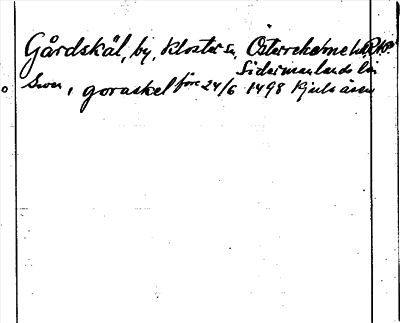 Gårdskäl, by, Kloster sn, Österrekarne hd
Södermanlands län
Sven i goraskel före 24/6 1498 Kjuls åsen